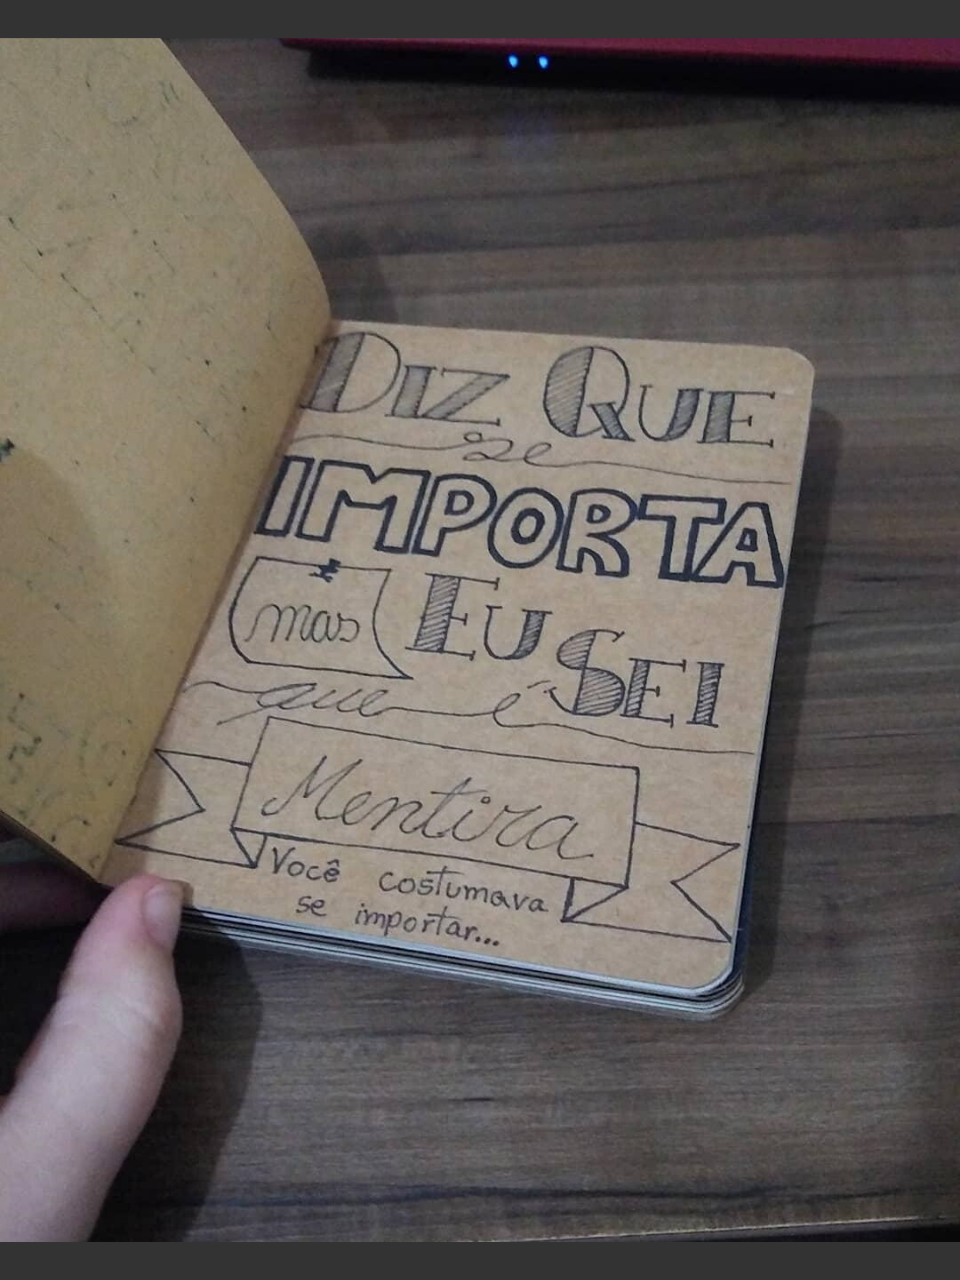 DIZ QUE
se
IMPORTA
mas EU SEI
que é
Mentira
Você costumava
se importar...